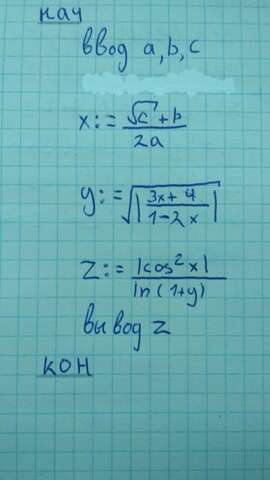 нач
ввод a, b, c
x := (√c + b) / 2a
y := √|(3x + 4) / (1 - 2x)|
z := |cos²x| / ln(1+y)
вывод z
кон